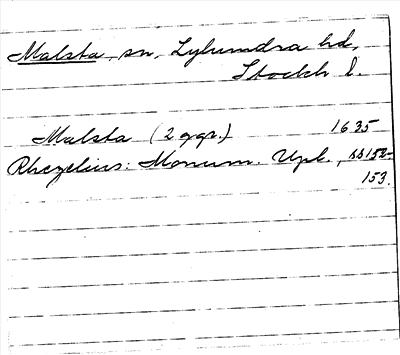 Malsta, sn, Lyhundra hd,
Stockh. l.
Malsta (2 ggr.) 1635
Rhezelius: Monum. Upl., ss 152-
153.